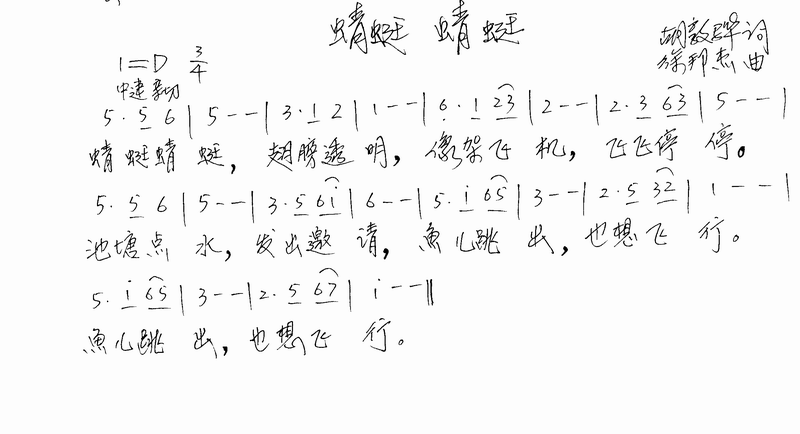 蜻蜓 蜻蜓
1=D 3/4
胡敦骅词
中速 亲切
徐邦杰曲
5. 5 6 | 5 - - | 3. 1 2 | 1 - - | 6. 1 23 | 2 - - | 2. 3 63 | 5 - - |
蜻蜓蜻 蜓，翅膀透 明，像架飞 机，飞飞停 停。
5. 5 6 | 5 - - | 3. 5 6i | 6 - - | 5. i 65 | 3 - - | 2. 5 32 | 1 - - |
池塘点 水，发出邀 请，魚儿跳 出，也想飞 行。
5. i 65 | 3 - - | 2. 5 67 | i - - ||
魚儿跳 出，也想飞 行。